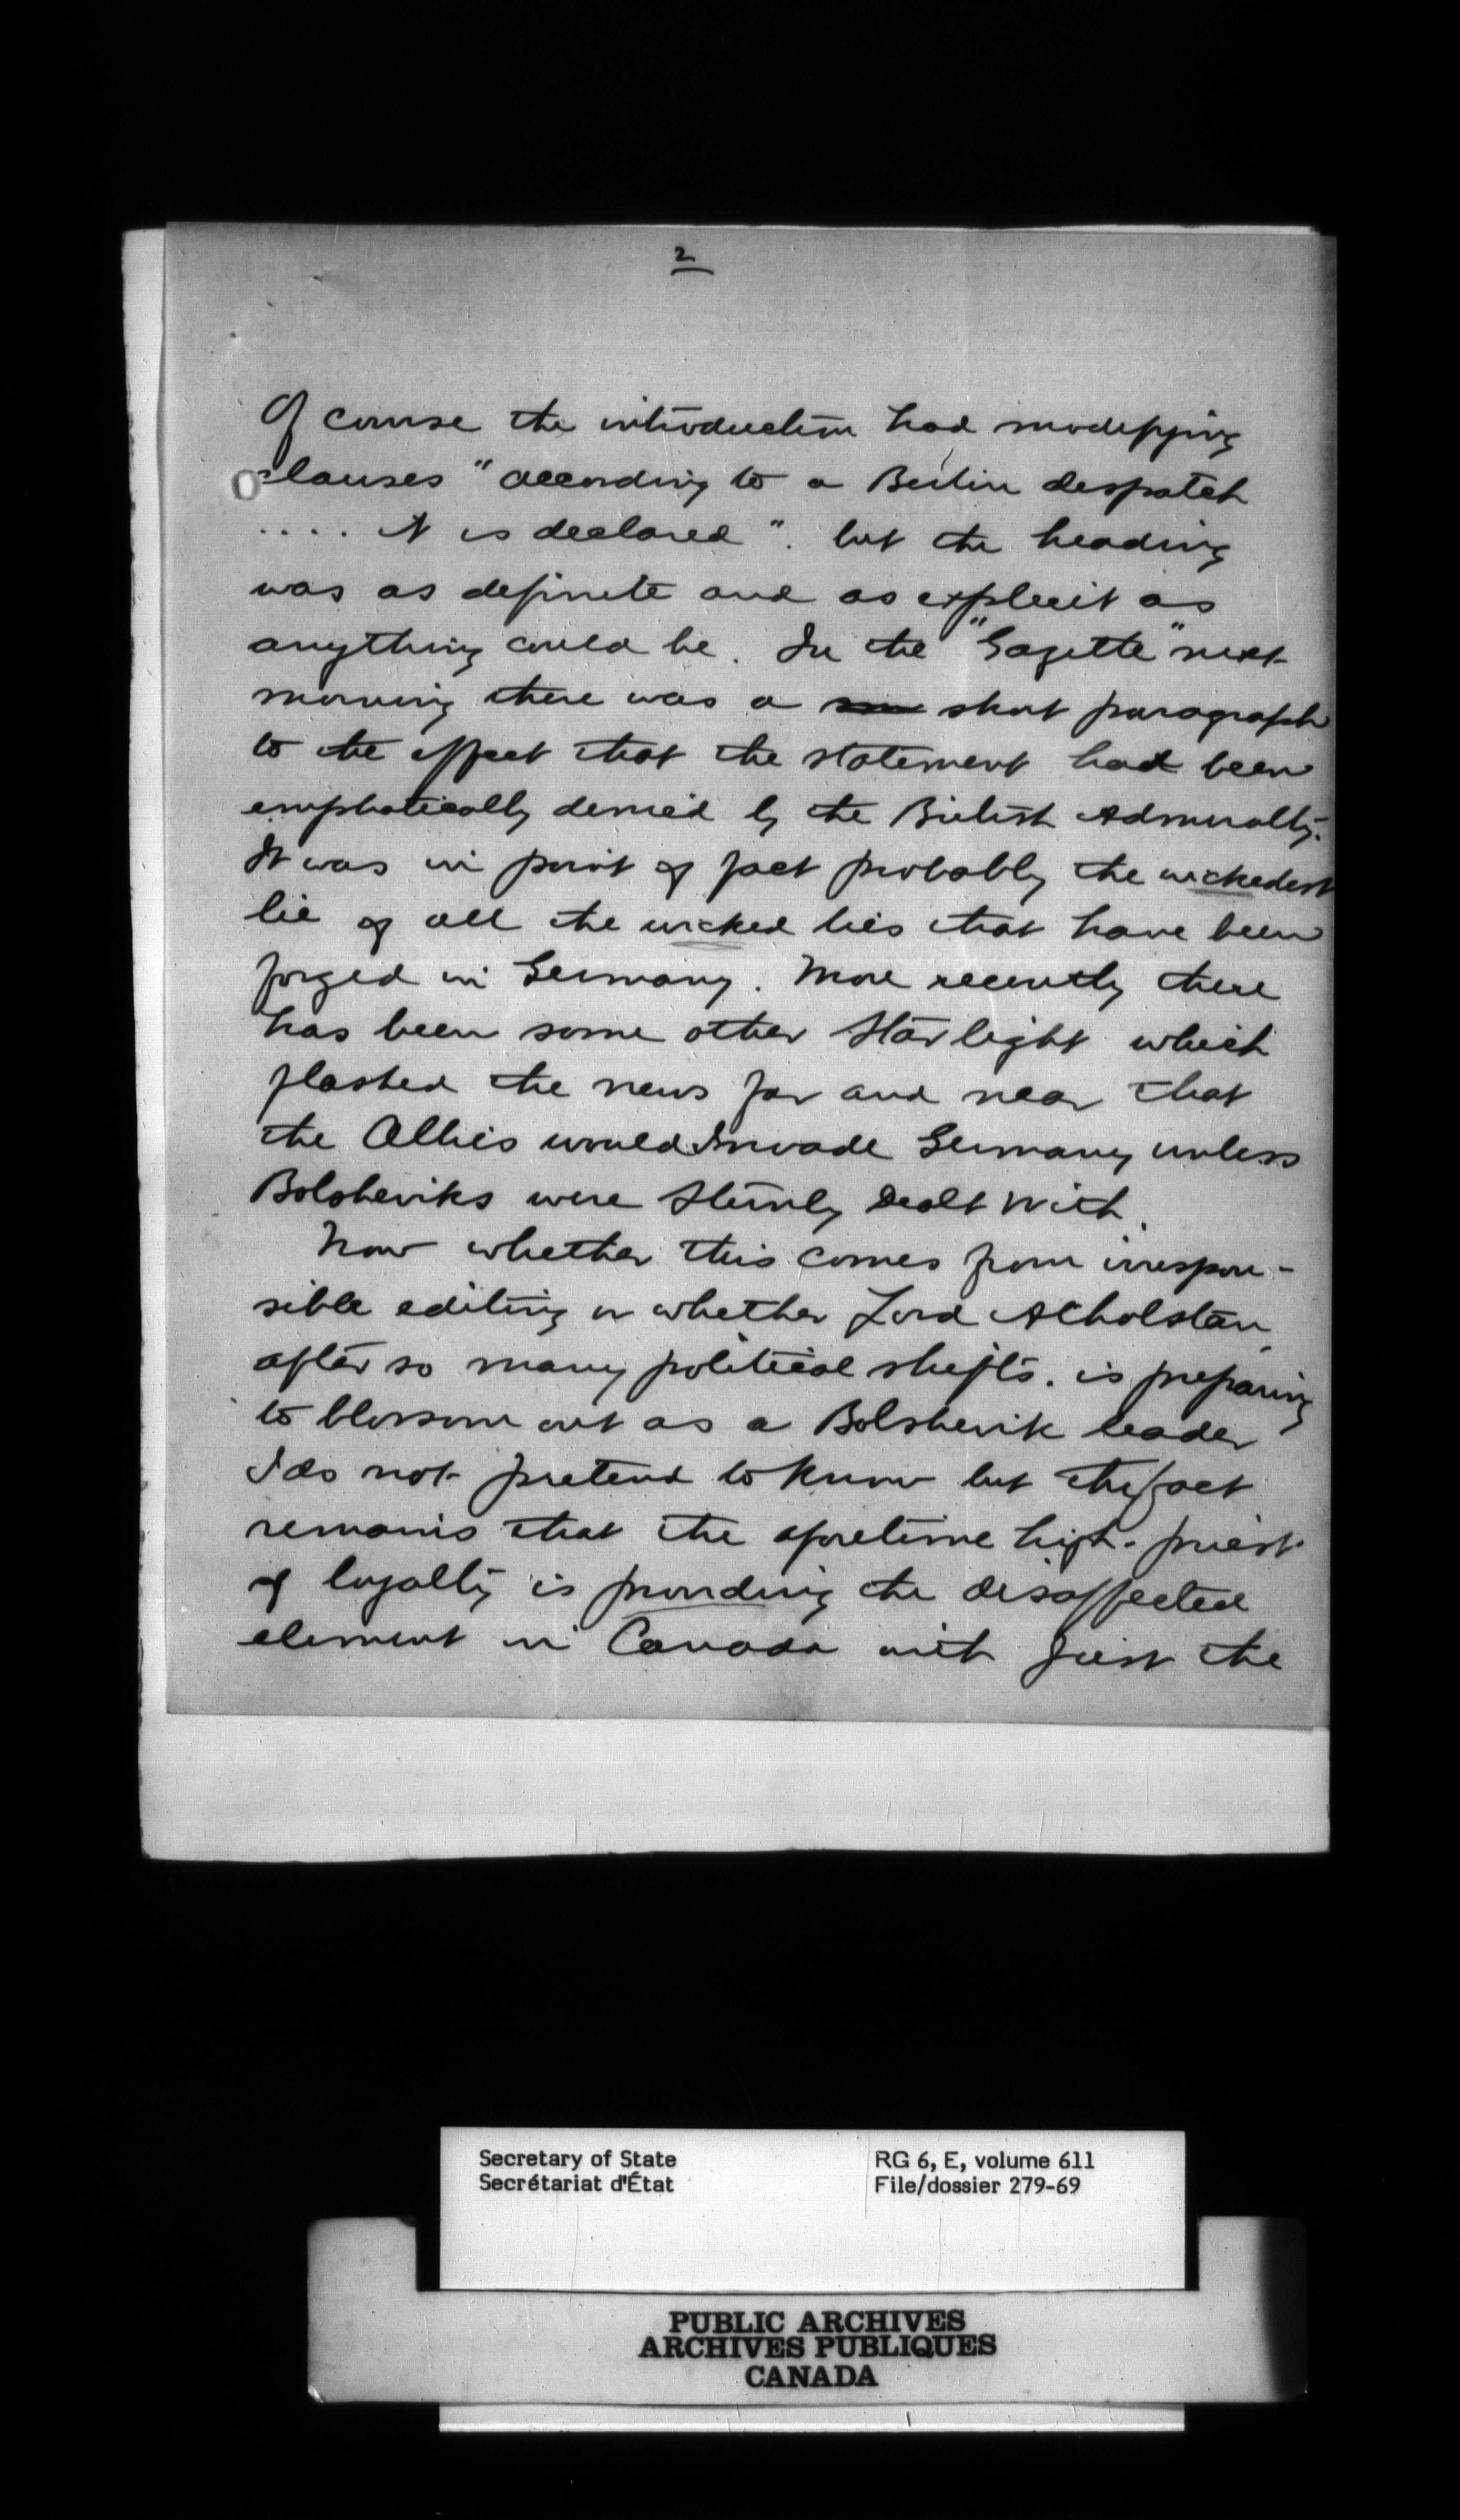 2
Of course the introduction had modifying
clauses "according to a Berlin despatch
.... it is declared". but the heading
was as definite and as explicit as
anything could be. In the "Gazette" next
morning there was a short paragraph
to the effect that the statement had been
emphatically denied by the British Admiralty.
It was in point of fact probably the wickedest
lie of all the wicked lies that have been
forged in Germany. More recently there
has been some other Star light which
flashed the news far and near that
the Allies would Invade Germany unless
Bolsheviks were Sternly Dealt With.
Now whether this comes from irrespon-
sible editing or whether Lord Atholstan,
after so many political shifts. is preparing
to blossom out as a Bolshevik leader
I do not pretend to know but the fact
remains that the aforetime high-priest
of loyalty is providing the disaffected
element in Canada with just the
Secretary of State
Secrétariat d'État
RG 6, E, volume 611
File/dossier 279-69
PUBLIC ARCHIVES
ARCHIVES PUBLIQUES
CANADA